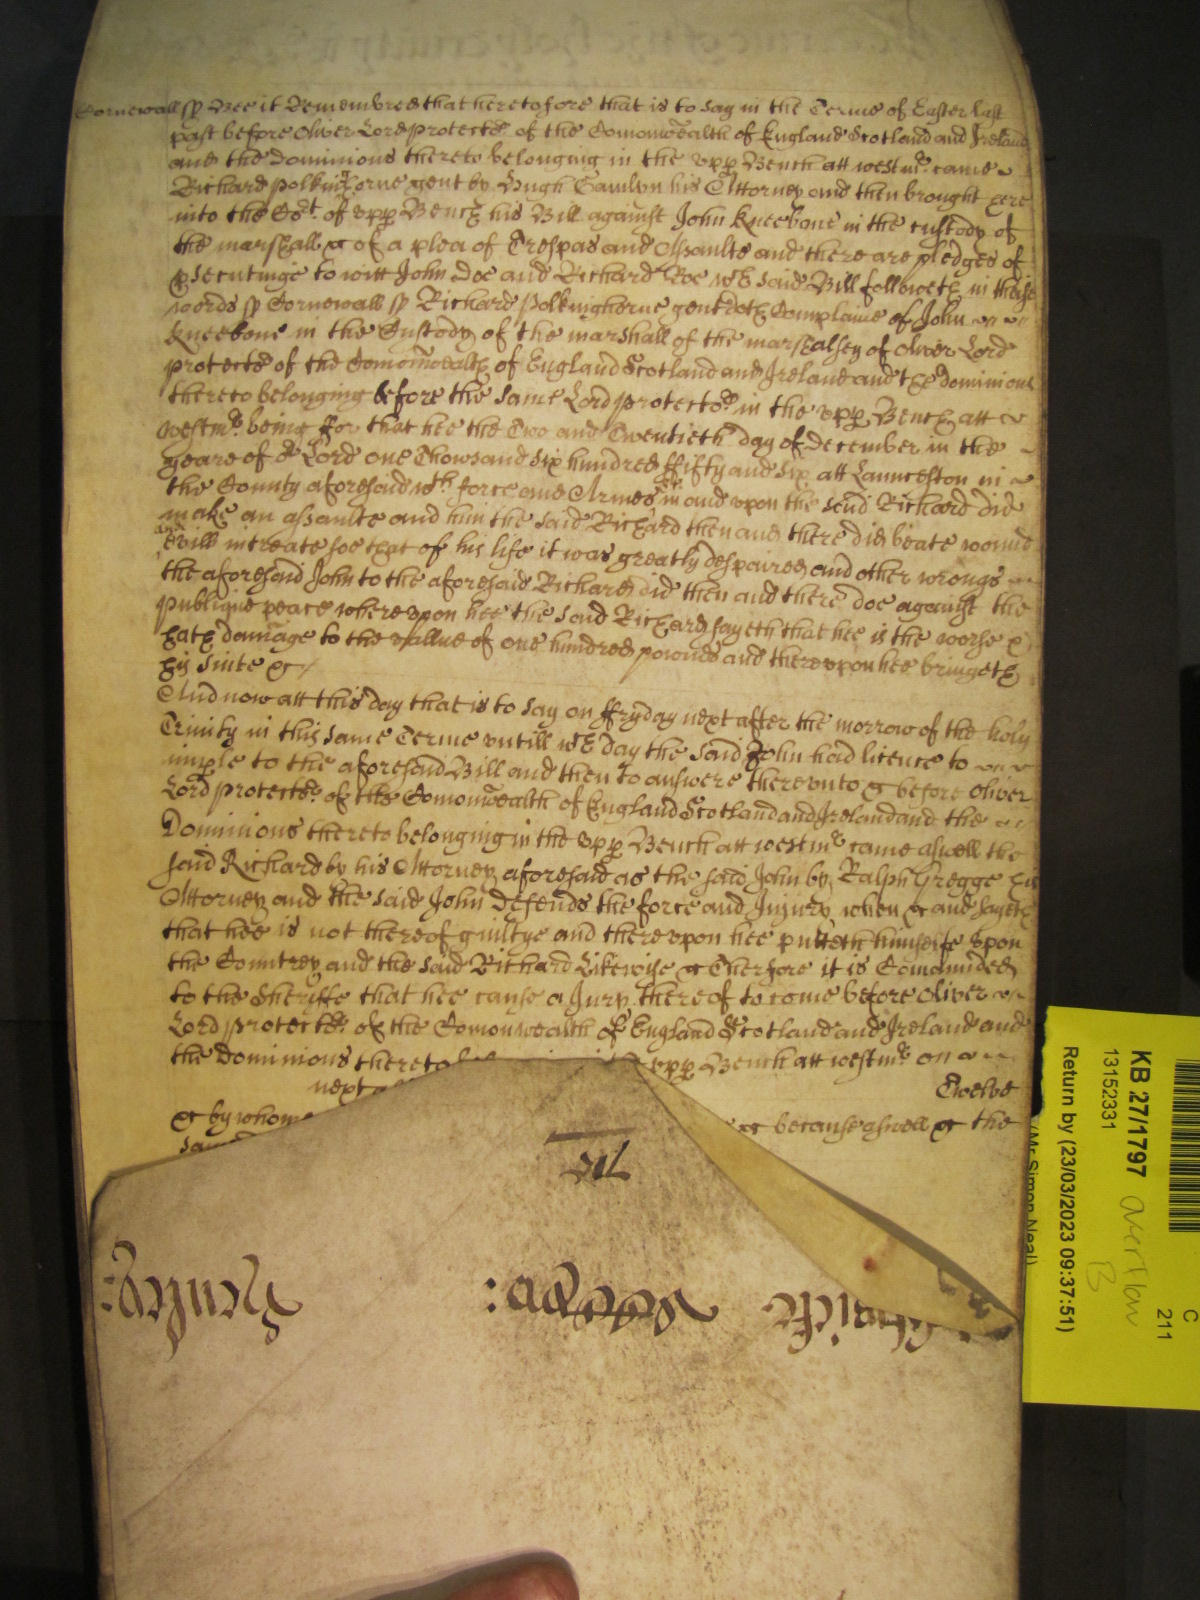 Cornewall sp Bee it Remembred that heretofore that is to say in the Terme of Easter last
past before Oliver Lord protector of the Comonwealth of England Scotland and Ireland
and the dominions thereto belonging in the upp Bench att westmr came
Richard Polkinhorne gent by Hugh his Attorney and then brought here
into the Cort of upp Bench his Bill against John Kneebone in the custody of
the marshall &c of a plea of Trespas and Assaulte and there are pledges of
psecutinge to witt John Doe and Richard Roe wch said Bill followeth in these
words sp Cornewall sp Richard Polkinghorne gent doth Complaine of John
Kneebone in the Custody of the marshall of the marshalsey of Oliver Lord
protector of the Comonwealth of England Scotland and Ireland and the dominions
thereto belonging before the same Lord protector in the upp Bench att
westmr being for that hee the Two and Twentieth day of December in the
yeare of or Lord one Thowsand six hundred ffifty and six att Launceston in
the County aforesaid wth force and Armes &c in and upon the said Richard did
make an assaulte and him the said Richard then and there did beate wound
and evill intreate soe that of his life it was greatly despaired and other wrongs
the aforesaid John to the aforesaid Richard did then and there doe against the
publique peace whereupon hee the said Richard sayeth that hee is the worse &
hath damage to the vallue of one hundred pounds and thereupon hee bringeth
his suite &c
And now att this day that is to say on ffryday next after the morrow of the holy
Trinity in this same Terme untill wch day the said John had licence to
imple to the aforesaid Bill and then to answere thereunto &c before Oliver
Lord protector of the Comonwealth of England Scotland and Ireland and the
Dominions thereto belonging in the upp Bench att westmr came aswell the
said Richard by his Attorney aforesaid as the said John by Ralph Gregge his
Attorney and the said John defends the force and Injury when &c and sayeth
that hee is not thereof guiltye and thereupon hee putteth himselfe upon
the Countrey and the said Richard Likewise &c Therfore it is Comanded
to the Sheriffe that hee cause a Jury thereof to come before Oliver
Lord protector of the Comonwealth of England Scotland and Ireland and
the Dominions thereto upp Bench att westmr on
next Twelve
&c by whome &c because aswell &c the
KB 27/1797
13152331
Return by (23/03/2023 09:37:51)
(Mr Simon Neal)
C
211
overflow
B